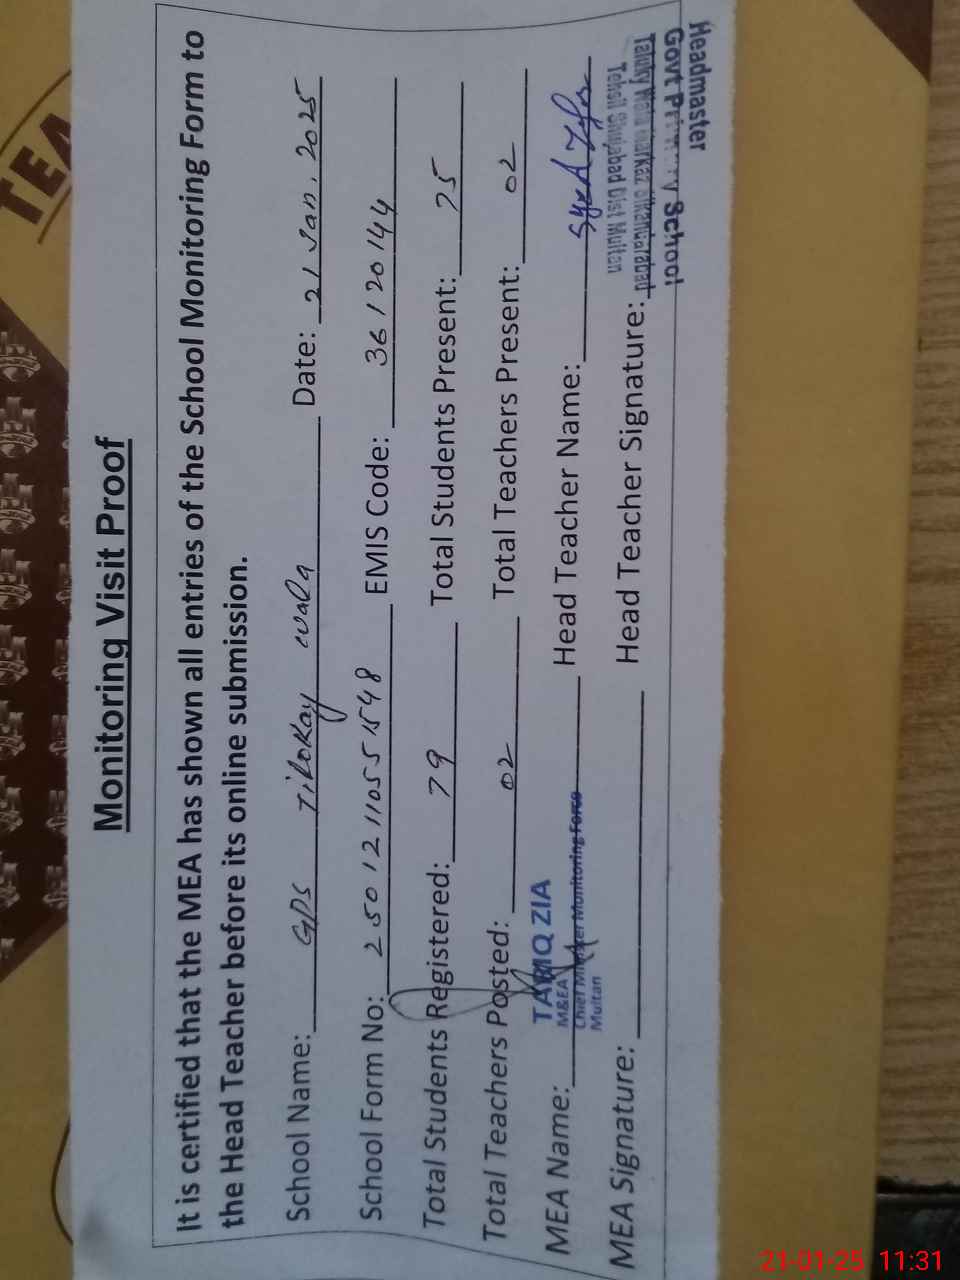 TEA
Monitoring Visit Proof
It is certified that the MEA has shown all entries of the School Monitoring Form to
the Head Teacher before its online submission.
School Name: GPS Tibokay wala Date: 21 Jan, 2025
School Form No: 25012110551548 EMIS Code: 36120144
Total Students Registered: 79 Total Students Present: 75
Total Teachers Posted: 02 Total Teachers Present: 02
MEA Name: Head Teacher Name:
TARIQ ZIA
M&EA
Chief Minister Monitoring Force
Multan
MEA Signature: Head Teacher Signature:
Tehsil Shujabad Dist Multan
Govt Primary School
Headmaster
21-01-25 11:31